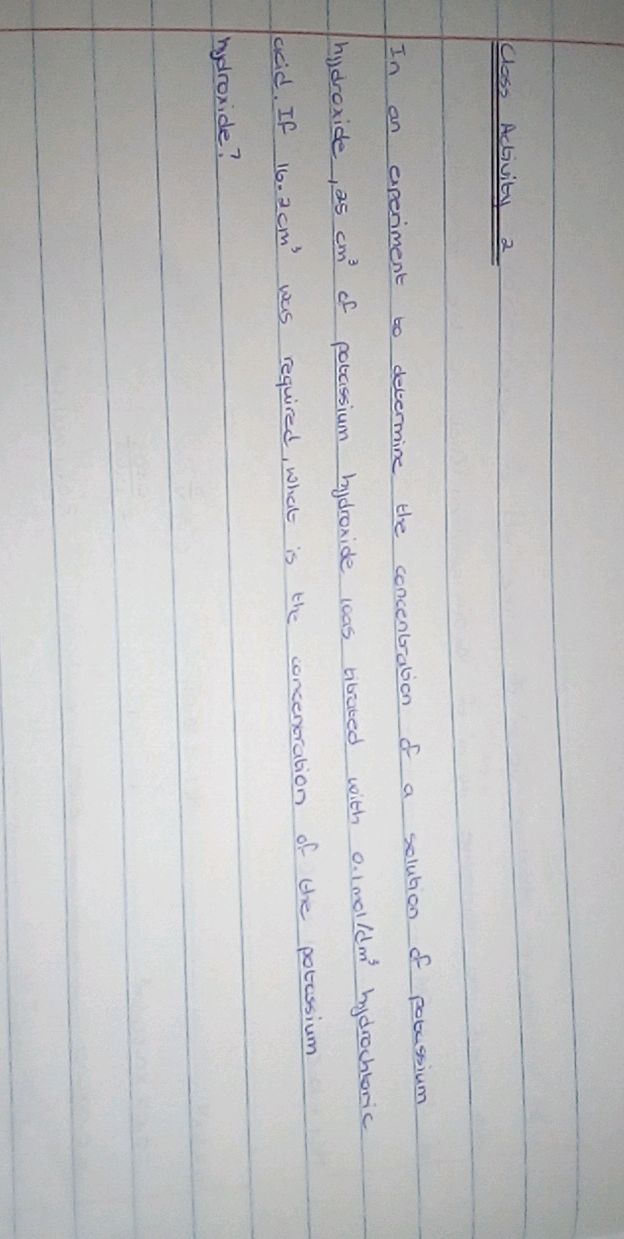 Class Activity 2
In an experiment to determine the concentration of a solution of potassium
hydroxide, 25 cm³ of potassium hydroxide was titrated with 0.1mol/dm³ hydrochloric
acid. If 16.2cm³ was required, what is the concentration of the potassium
hydroxide?